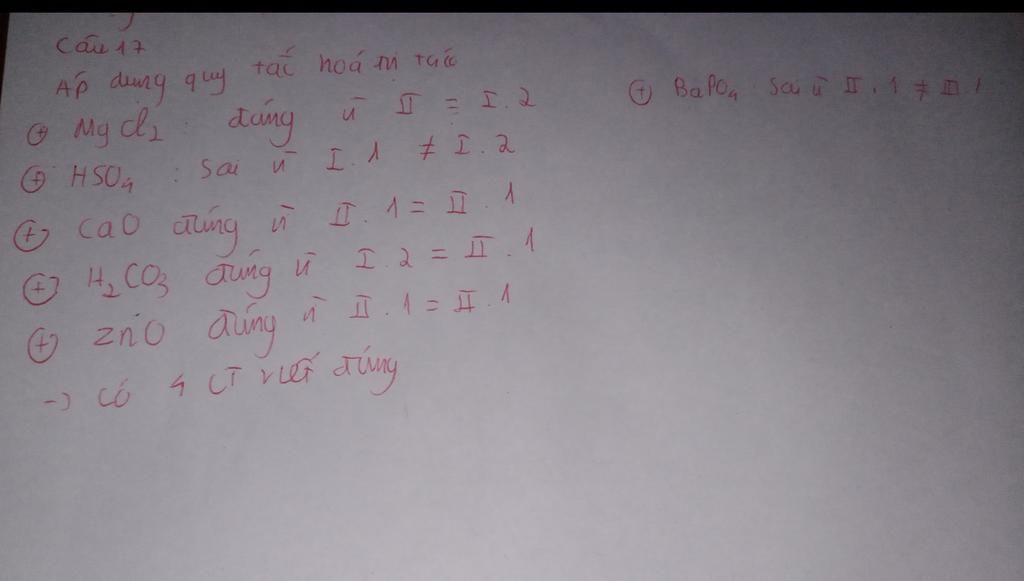 Câu 17
Áp dụng quy tắc hoá trị tacó
⊕ MgCl₂ : đúng vì II = I.2
⊕ HSO₄ : Sai vì I.1 ≠ I.2
⊕ CaO đúng vì II.1 = II.1
⊕ H₂CO₃ đúng vì I.2 = II.1
⊕ ZnO đúng vì II.1 = II.1
-> Có 4 CT viết đúng
⊕ BaPO₄ : Sai vì II.1 ≠ III.1